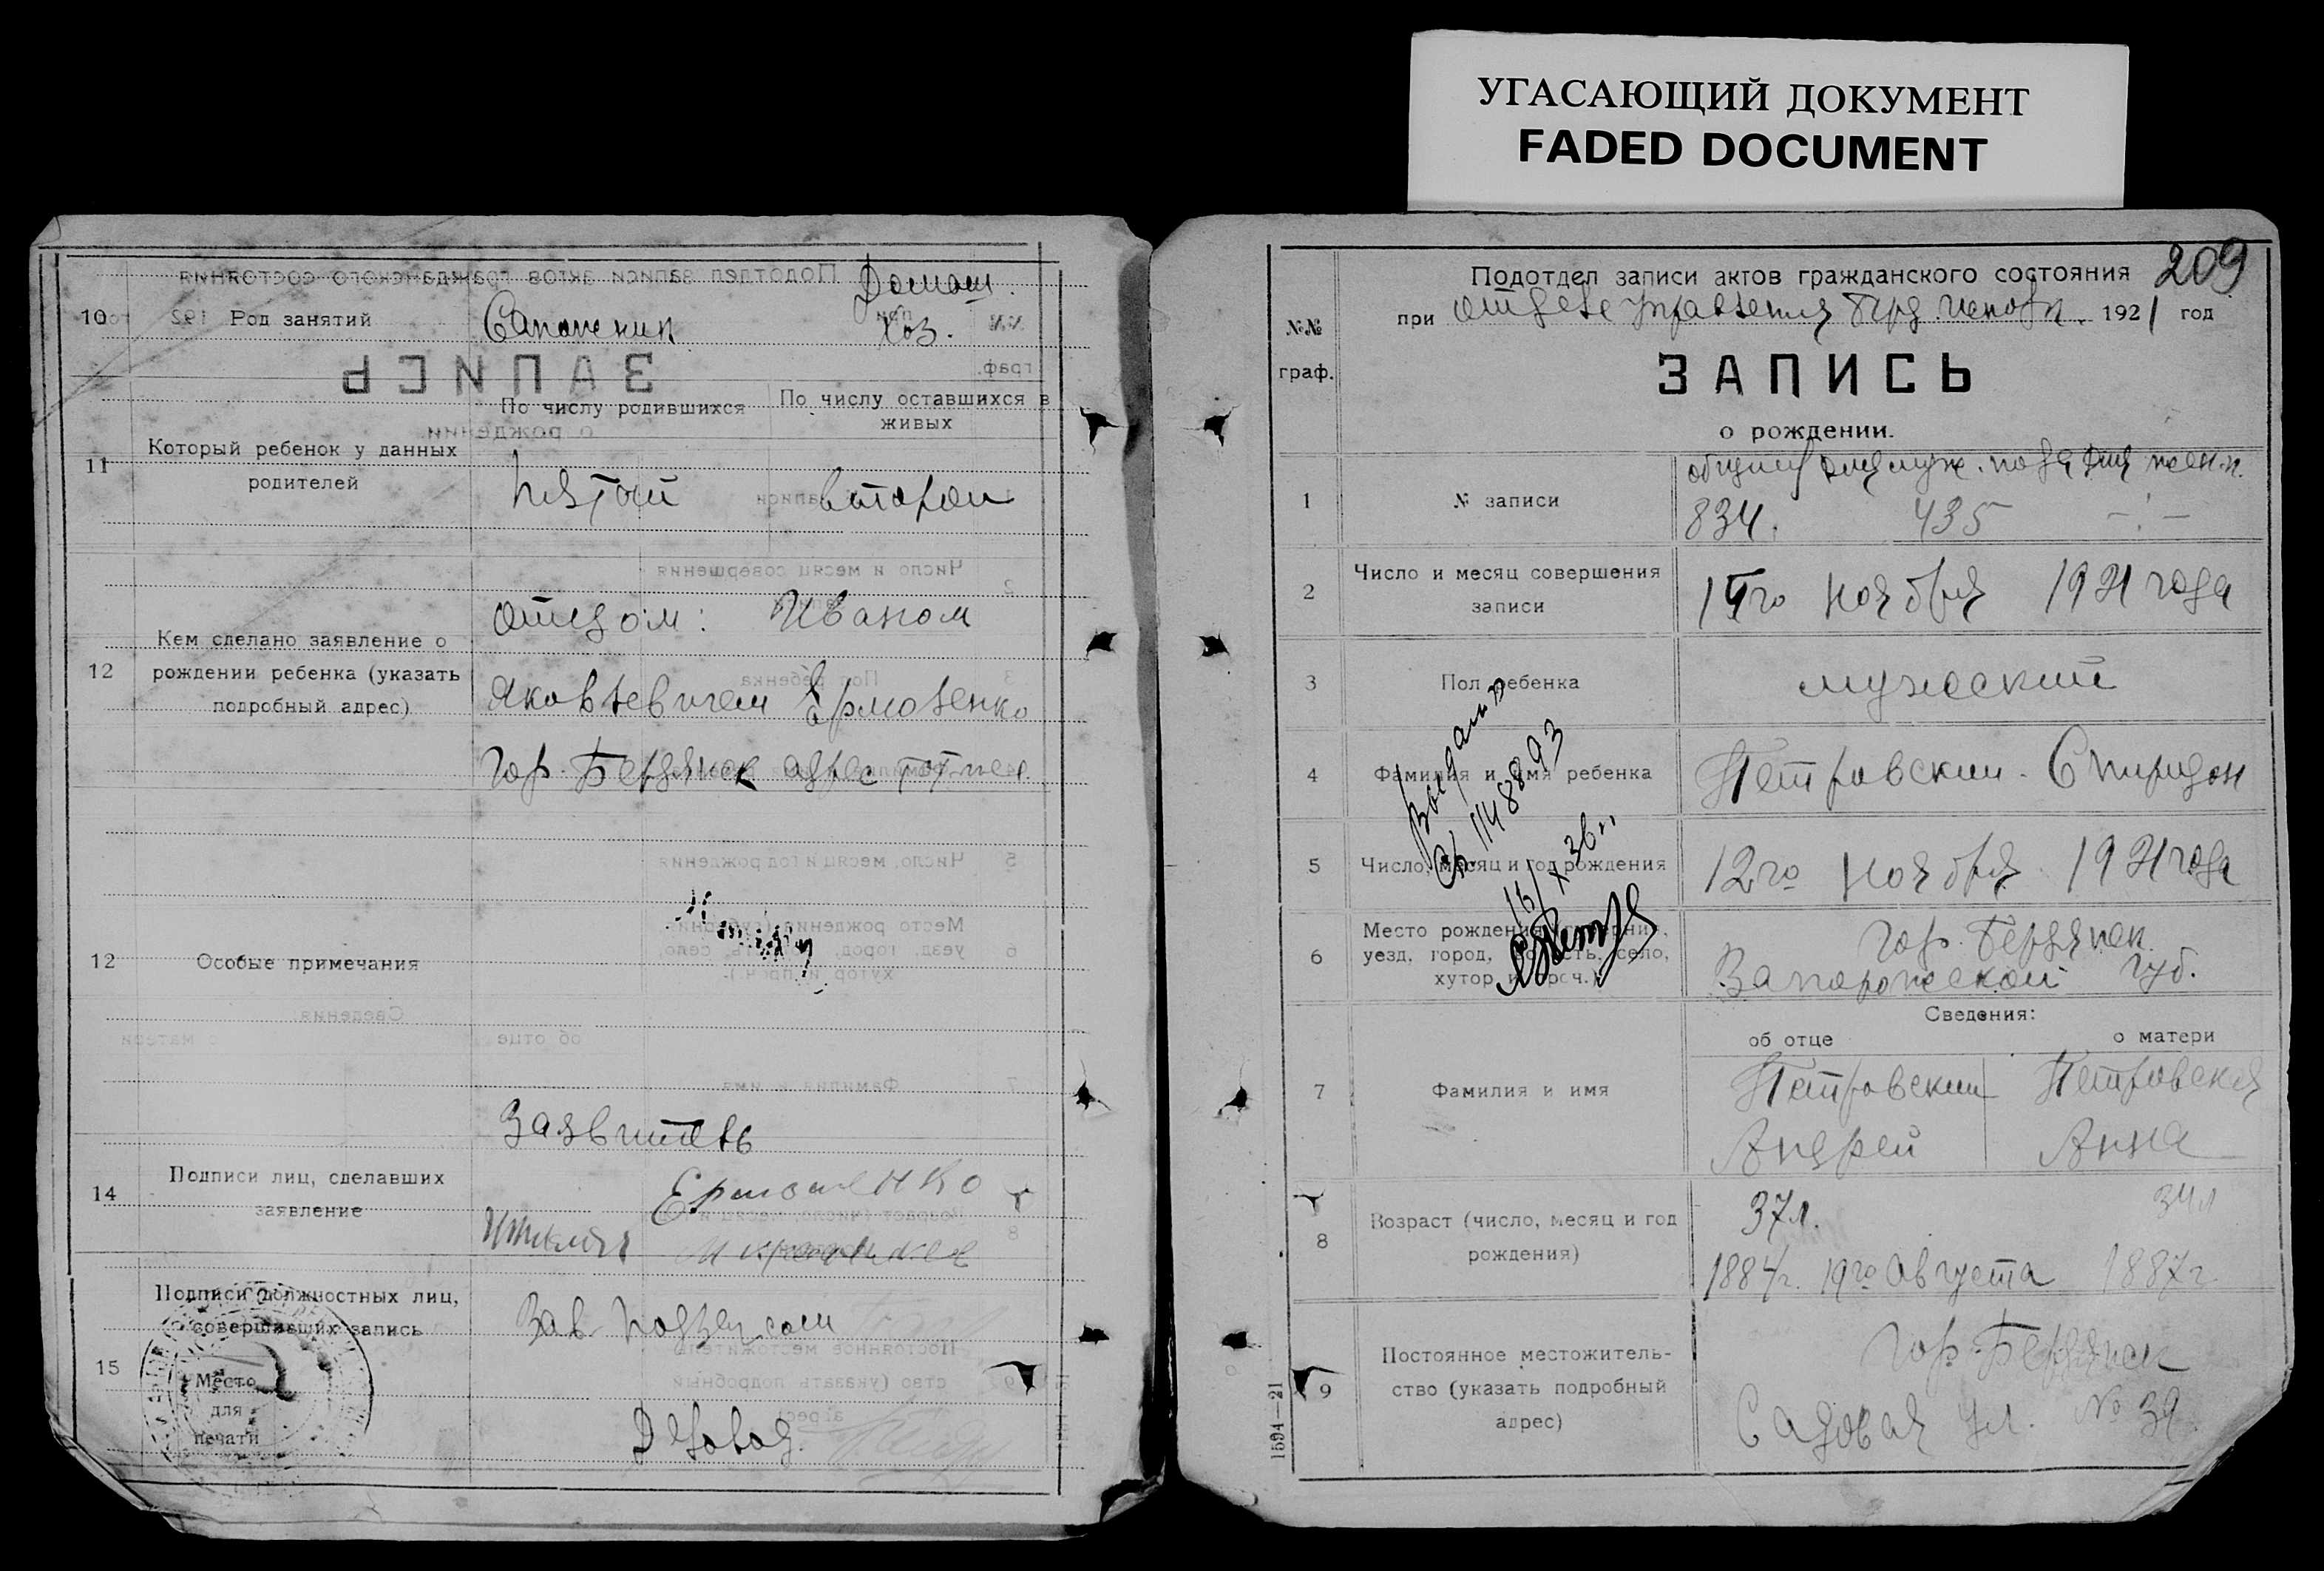 УГАСАЮЩИЙ ДОКУМЕНТ
FADED DOCUMENT
10 Род занятий Сапожник Домаш.
хоз.
По числу родившихся По числу оставшихся в живых
11 Который ребенок у данных родителей
пятый второй
12 Кем сделано заявление о рождении ребенка (указать подробный адрес)
отцом: Иваном
Яковлевичем Ермоленко
гор. Бердянск адрес тот же
12 Особые примечания
14 Подписи лиц, сделавших заявление
Заявитель
Ермоленко
15 Подписи должностных лиц, совершивших запись
Зав.
Делопр.
Место
для
печати
209
Подотдел записи актов гражданского состояния
при отделе управления Берд. 1921 год
№№ граф.
ЗАПИСЬ
о рождении.
1 № записи
общий для муж. пола для жен. п.
834. 435 —.—
2 Число и месяц совершения записи
ноября 1921 года
3 Пол ребенка мужеский
4 Фамилия и имя ребенка Петровский Спиридон
5 Число, месяц и год рождения 12го ноября 1921 года
6 Место рождения (губерния, уезд, город, волость, село, хутор и проч.)
гор. Бердянск
Запорожской губ.
Сведения:
об отце о матери
7 Фамилия и имя
Петровский Петровская
Андрей Анна
8 Возраст (число, месяц и год рождения)
37 л. 34 л
1884 г. 19го Августа 1887 г.
9 Постоянное местожительство (указать подробный адрес)
гор. Бердянск
Садовая ул. № 39
1594—21
1148893
16/X 36 г.